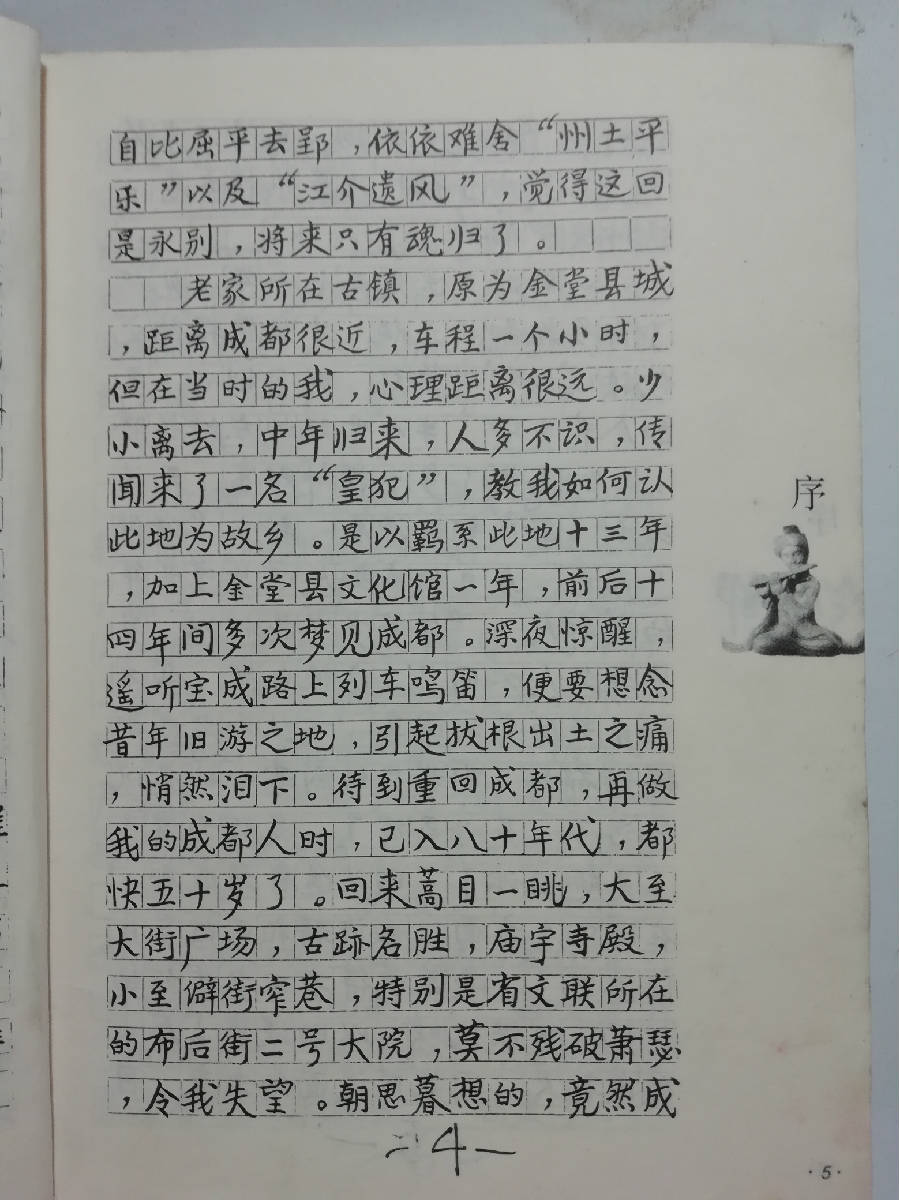 自比屈平去郢，依依难舍“州土平
乐”以及“江介遗风”，觉得这回
是永别，将来只有魂归了。
老家所在古镇，原为金堂县城
，距离成都很近，车程一个小时，
但在当时的我，心理距离很远。少
小离去，中年归来，人多不识，传
闻来了一名“皇犯”，教我如何认
此地为故乡。是以羁系此地十三年
，加上金堂县文化馆一年，前后十
四年间多次梦见成都。深夜惊醒，
遥听宝成路上列车鸣笛，便要想念
昔年旧游之地，引起拔根出土之痛
，悄然泪下。待到重回成都，再做
我的成都人时，已入八十年代，都
快五十岁了。回来蒿目一眺，大至
大街广场，古跡名胜，庙宇寺殿，
小至僻街窄巷，特别是省文联所在
的布后街二号大院，莫不残破萧瑟
，令我失望。朝思暮想的，竟然成
4
序
·5·